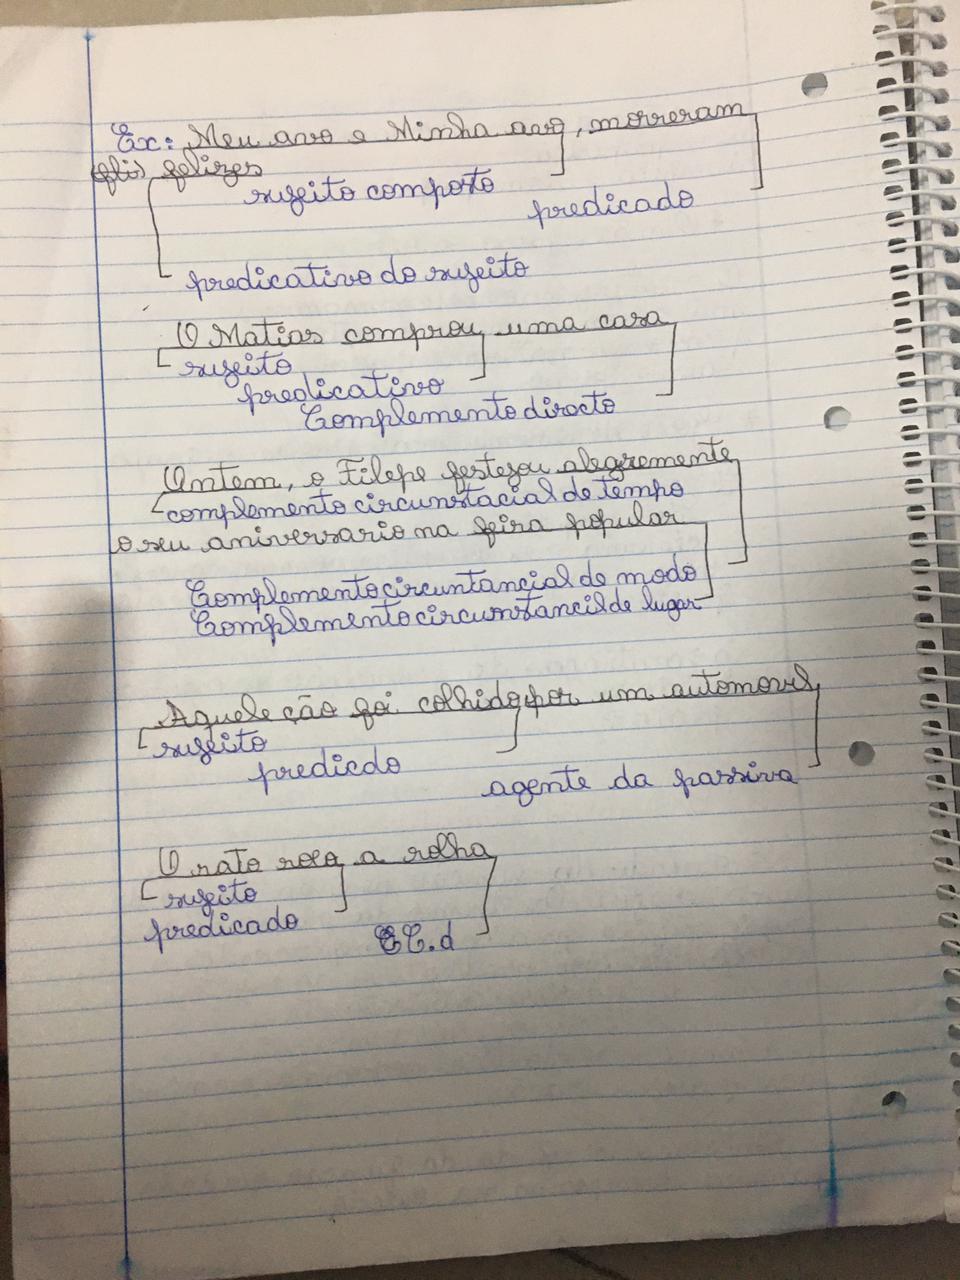 Ex: Meu avo e Minha avo, morreram
(fli) felizes
sujeito composto
predicado
predicativo do sujeito
O Matias comprou uma casa
sujeito
predicativo
Complemento directo
Ontem, o Filepe festejou alegremente
complemento circunstacial de tempo
o seu aniversario na feira popular
Complemento circuntancial de modo
Complemento circunstancil de lugar
Aquele ção foi colhido por um automovel
sujeito
predicdo
agente da passiva
O rato roeo a rolha
sujeito
predicado
C.d